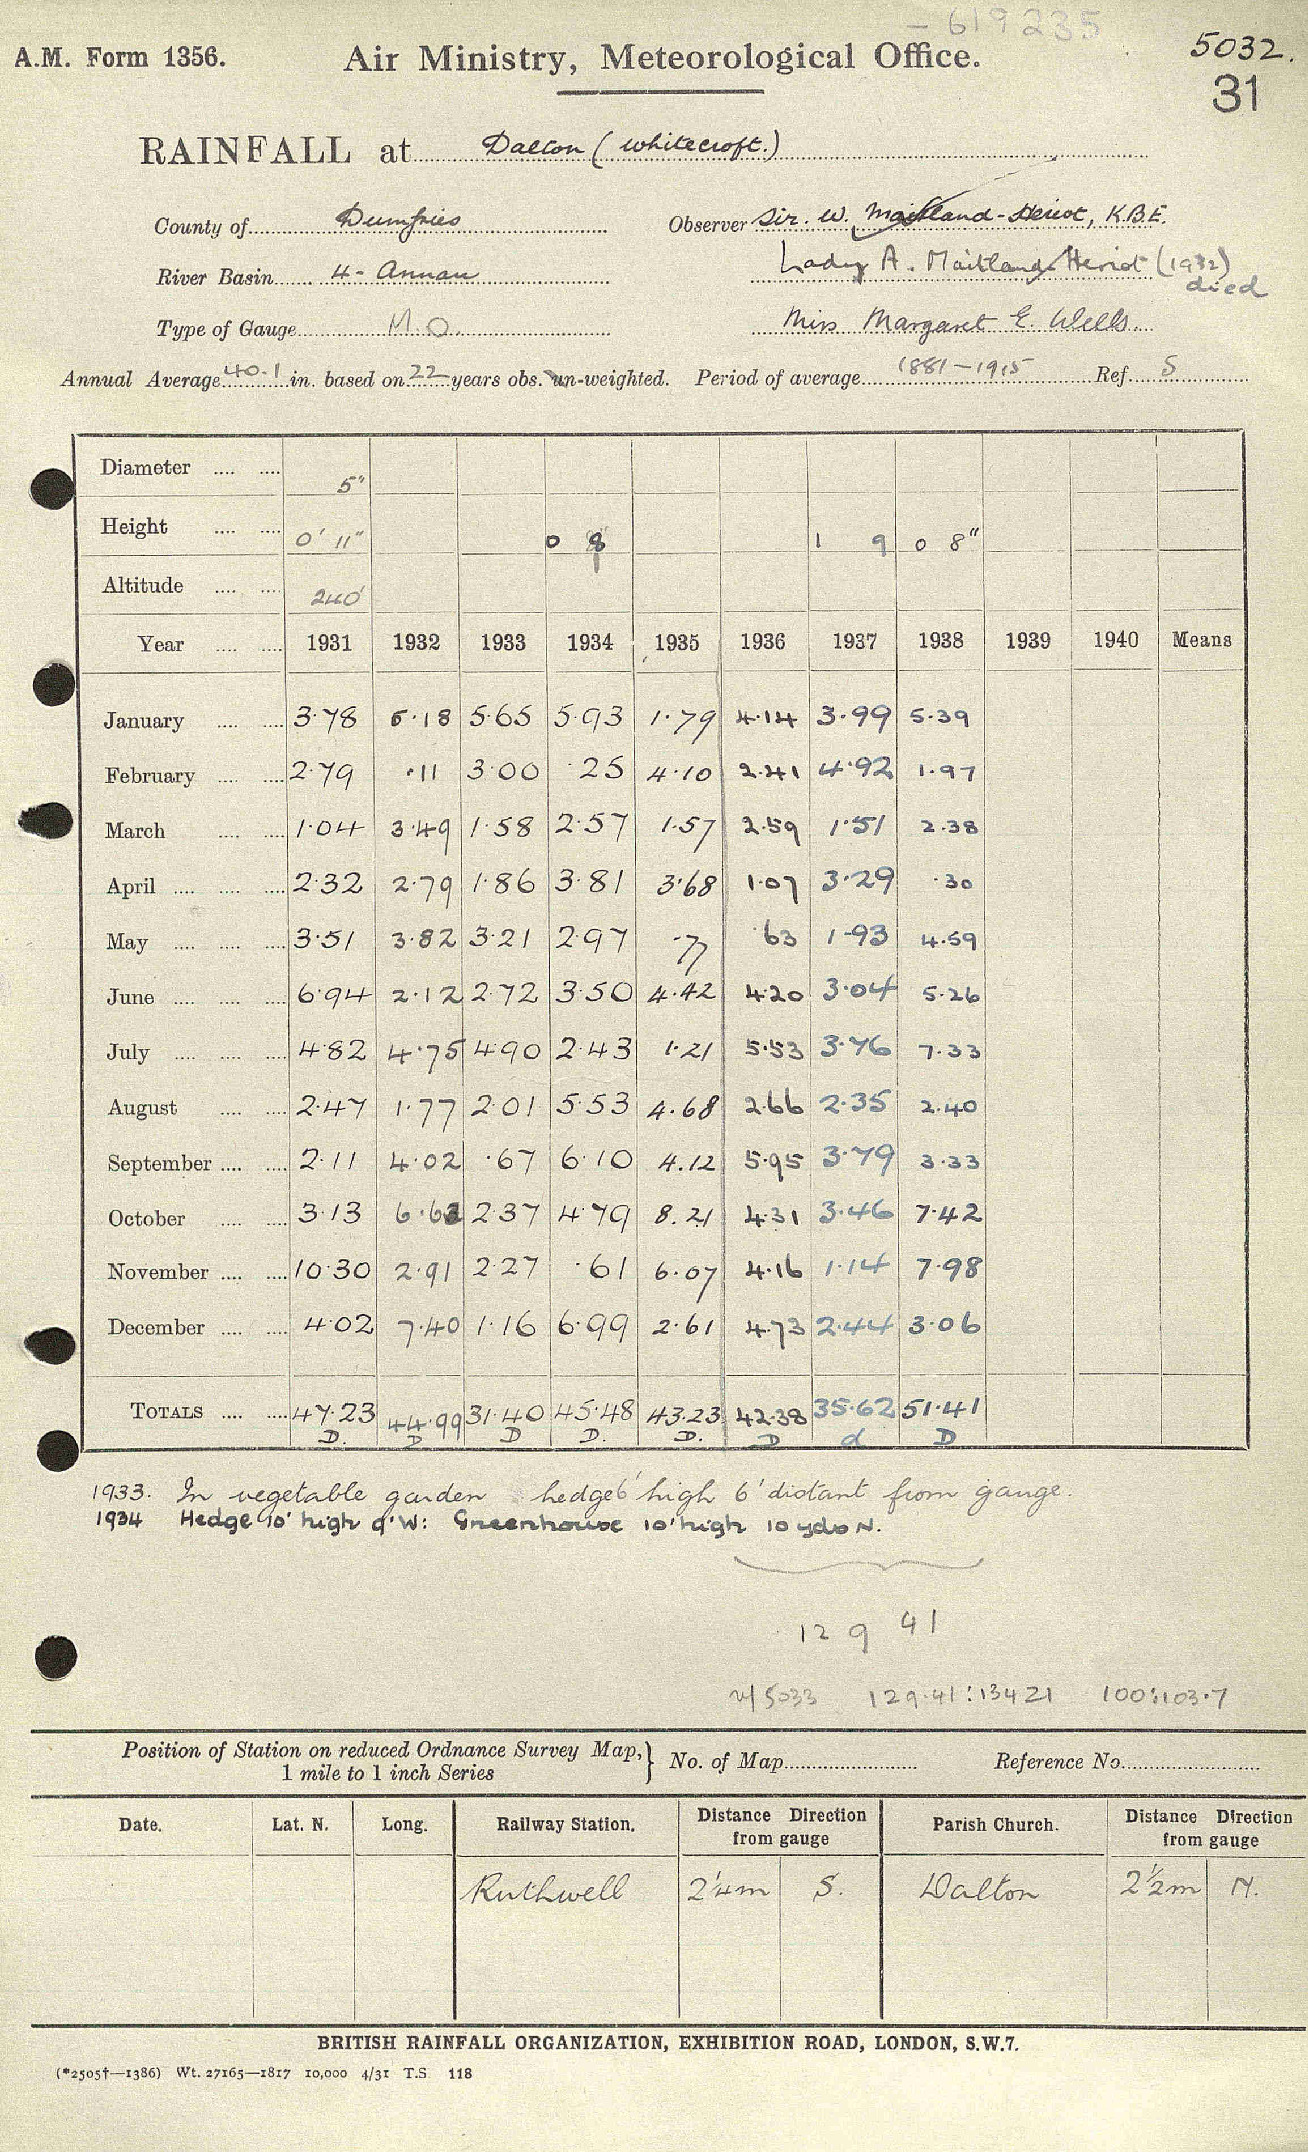 - 619235
A.M. Form 1356. Air Ministry, Meteorological Office. 5032.
31
RAINFALL at Dalton (Whitecroft.)
County of Dumfries Observer Sir. W. Maitland-Heriot, K.B.E.
River Basin 4 - Annan Lady A. Maitland Heriot (1932) died
Type of Gauge M O. Miss Margaret E. Wells.
Annual Average 40.1 in. based on 22 years obs. un-weighted. Period of average 1881-1915 Ref. S
Diameter .... .... 5"
Height .... .... 0' 11" 0 8 1 9 0 8"
Altitude .... .... 240'
Year .... .... 1931 1932 1933 1934 1935 1936 1937 1938 1939 1940 Means
January .... .... 3.78 5.18 5.65 5.93 1.79 4.14 3.99 5.39
February .... .... 2.79 .11 3.00 .25 4.10 2.41 4.92 1.97
March .... .... 1.04 3.49 1.58 2.57 1.57 2.59 1.51 2.38
April .... .... .... 2.32 2.79 1.86 3.81 3.68 1.07 3.29 .30
May .... .... .... 3.51 3.82 3.21 2.97 .77 .63 1.93 4.59
June .... .... .... 6.94 2.12 2.72 3.50 4.42 4.20 3.04 5.26
July .... .... .... 4.82 4.75 4.90 2.43 1.21 5.53 3.76 7.33
August .... .... 2.47 1.77 2.01 5.53 4.68 2.66 2.35 2.40
September .... .... 2.11 4.02 .67 6.10 4.12 5.95 3.79 3.33
October .... .... 3.13 6.63 2.37 4.79 8.21 4.31 3.46 7.42
November .... .... 10.30 2.91 2.27 .61 6.07 4.16 1.14 7.98
December .... .... 4.02 7.40 1.16 6.99 2.61 4.73 2.44 3.06
TOTALS .... .... 47.23 44.99 31.40 45.48 43.23 42.38 35.62 51.41
D. D D D. D. D d D
1933. In vegetable garden hedge 6' high 6' distant from gauge.
1934 Hedge 10' high 9' W: Greenhouse 10' high 10 yds N.
12 9 41
w/ 5033 129.41 : 13421 100:103.7
Position of Station on reduced Ordnance Survey Map,} No. of Map Reference No.
1 mile to 1 inch Series
Date. Lat. N. Long. Railway Station. Distance Direction from gauge Parish Church. Distance Direction from gauge
Ruthwell 2¼m S. Dalton 2½m N.
BRITISH RAINFALL ORGANIZATION, EXHIBITION ROAD, LONDON, S.W.7.
(*2505†—1386) Wt. 27165—1817 10,000 4/31 T.S. 118